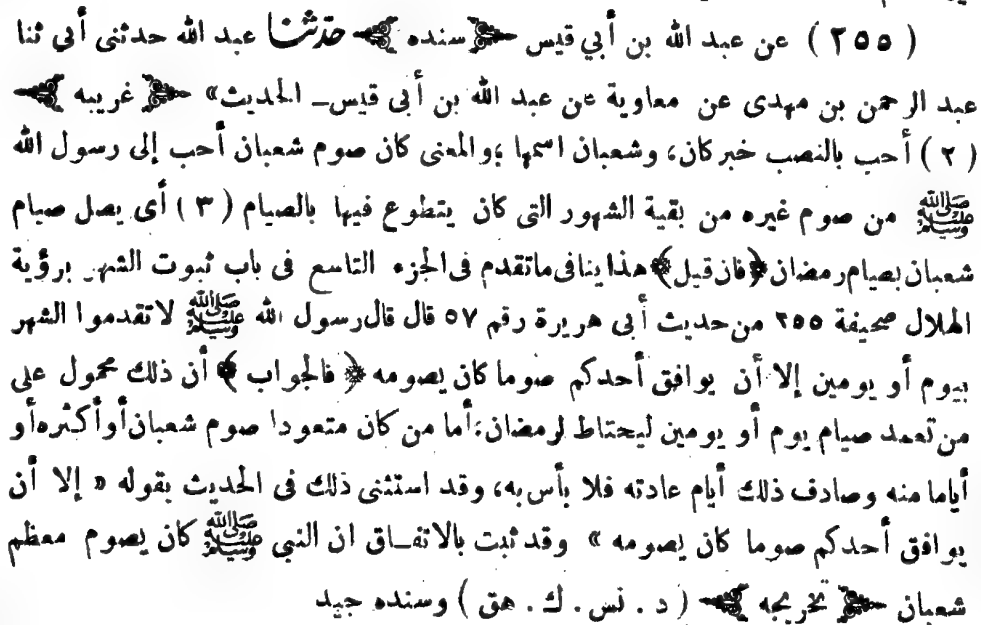 ( ٢٥٥ ) عن عبد الله بن أبي قيس ﴿ سنده ﴾ حدّثنا عبد الله حدثنى أبى ثنا
عبد الرحمن بن مهدى عن معاوية عن عبد الله بن أبى قيس ـ الحديث» ﴿ غريبه ﴾
( ٢ ) أحب بالنصب خبر كان، وشعبان اسمها ؛ والمعنى كان صوم شعبان أحب إلى رسول الله
ﷺ من صوم غيره من بقية الشهور التى كان يتطوع فيها بالصيام ( ٣ ) أى يصل صيام
شعبان بصيام رمضان ﴿ فان قيل ﴾ هذا ينافى ما تقدم فى الجزء التاسع فى باب ثبوت الشهر برؤية
الهلال صحيفة ٢٥٥ من حديث أبى هريرة رقم ٥٧ قال قال رسول الله ﷺ لا تقدموا الشهر
بيوم أو يومين إلا أن يوافق أحدكم صوما كان يصومه ﴿ فالجواب ﴾ أن ذلك محمول على
من تعمد صيام يوم أو يومين ليحتاط لرمضان، أما من كان متعودا صوم شعبان أو أكثره أو
أياما منه وصادف ذلك أيام عادته فلا بأس به، وقد استثنى ذلك فى الحديث بقوله « إلا أن
يوافق أحدكم صوما كان يصومه » وقد ثبت بالاتفـاق ان النبي ﷺ كان يصوم معظم
شعبان ﴿ تخريجه ﴾ ( د . نس . ك . هق ) وسنده جيد